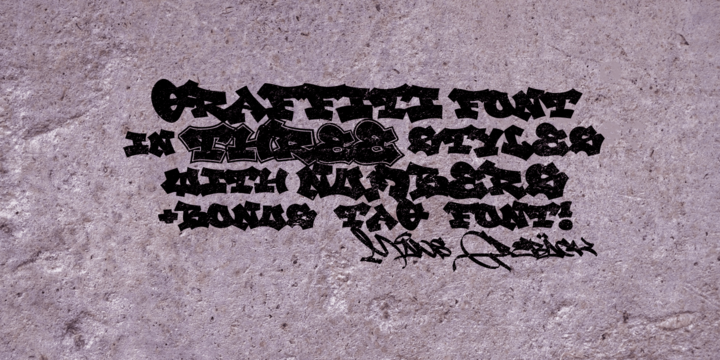 GRAFFITI FONT
IN THREE STYLES
WITH NUMBERS
+BONUS TAG FONT!
Måns Grebäck